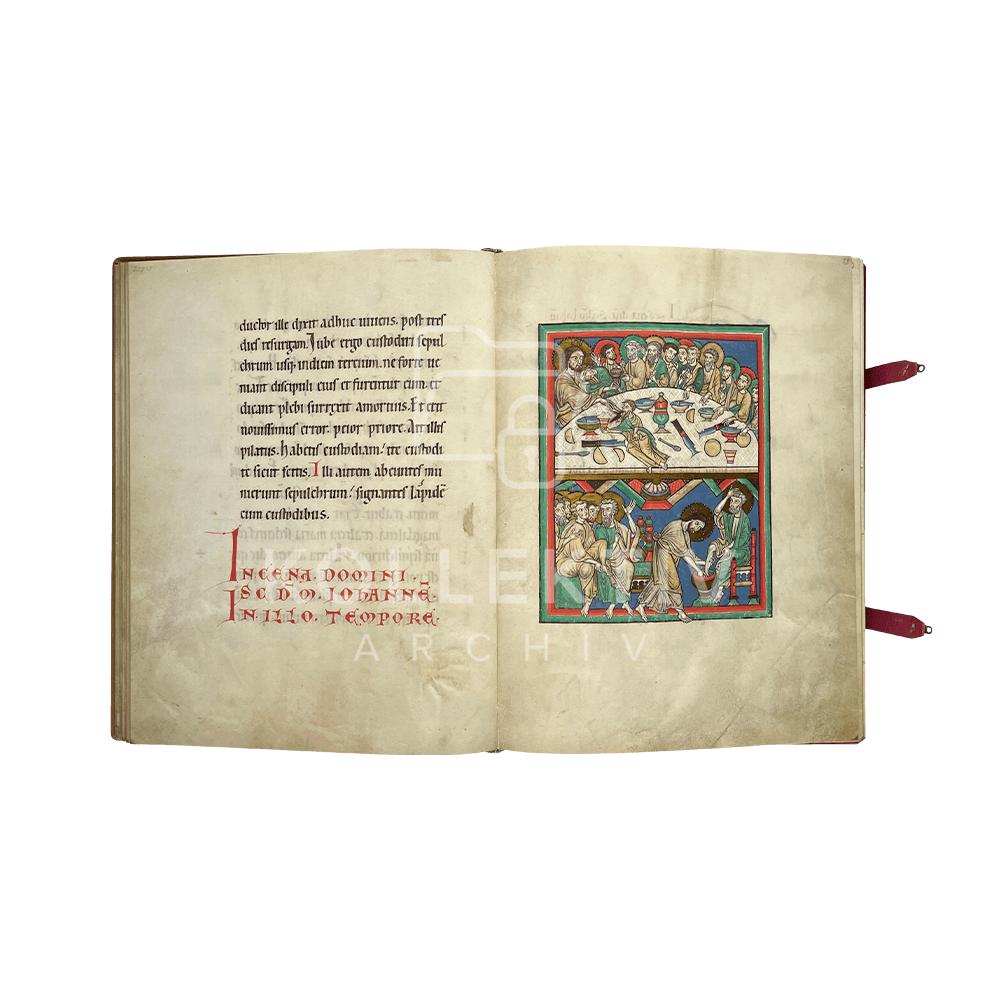 ductor ille dixit adhuc vivens. post tres
dies resurgam. Iube ergo custodiri sepul
chrum usq; in diem tercium. ne forte ve
niant discipuli eius et furentur eum. et
dicant plebi surrexit a mortuis. Et erit
novissimus error. peior priore. Ait illis
pilatus. habetis custodiam/ ite custodi
te sicut scitis. Illi autem abeuntes mu
nierunt sepulchrum/ signantes lapidē
cum custodibus.
IN CENA. DOMINI.
SC̄D̄M. IOHANNĒ.
IN. ILLO. TEMPORE.
ARCHIV